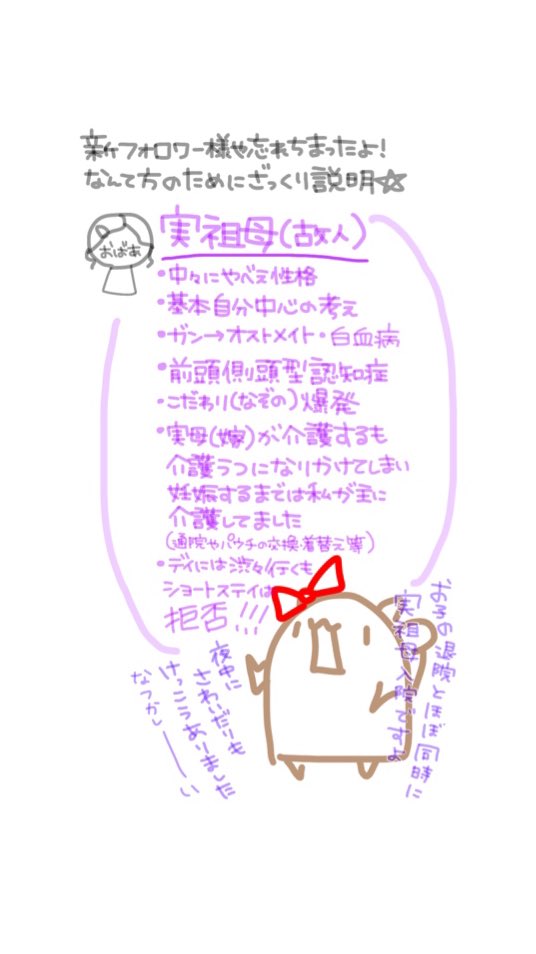 新フォロワー様や忘れちまったよ!
なんて方のためにざっくり説明☆
おばあ
実祖母(故人)
・中々にやべぇ性格
・基本自分中心の考え
・ガン→オストメイト・白血病
・前頭側頭型認知症
・こだわり(なぞの)爆発
・実母(嫁)が介護するも
介護うつになりかけてしまい
妊娠するまでは私が主に
介護してました
(通院やパウチの交換・着替え等)
・デイには渋々行くも
ショートステイは
拒否!!!
お子の退院とほぼ同時に
実祖母入院ですよ
夜中に
さわいだりも
けっこうありました
なつかしーーい